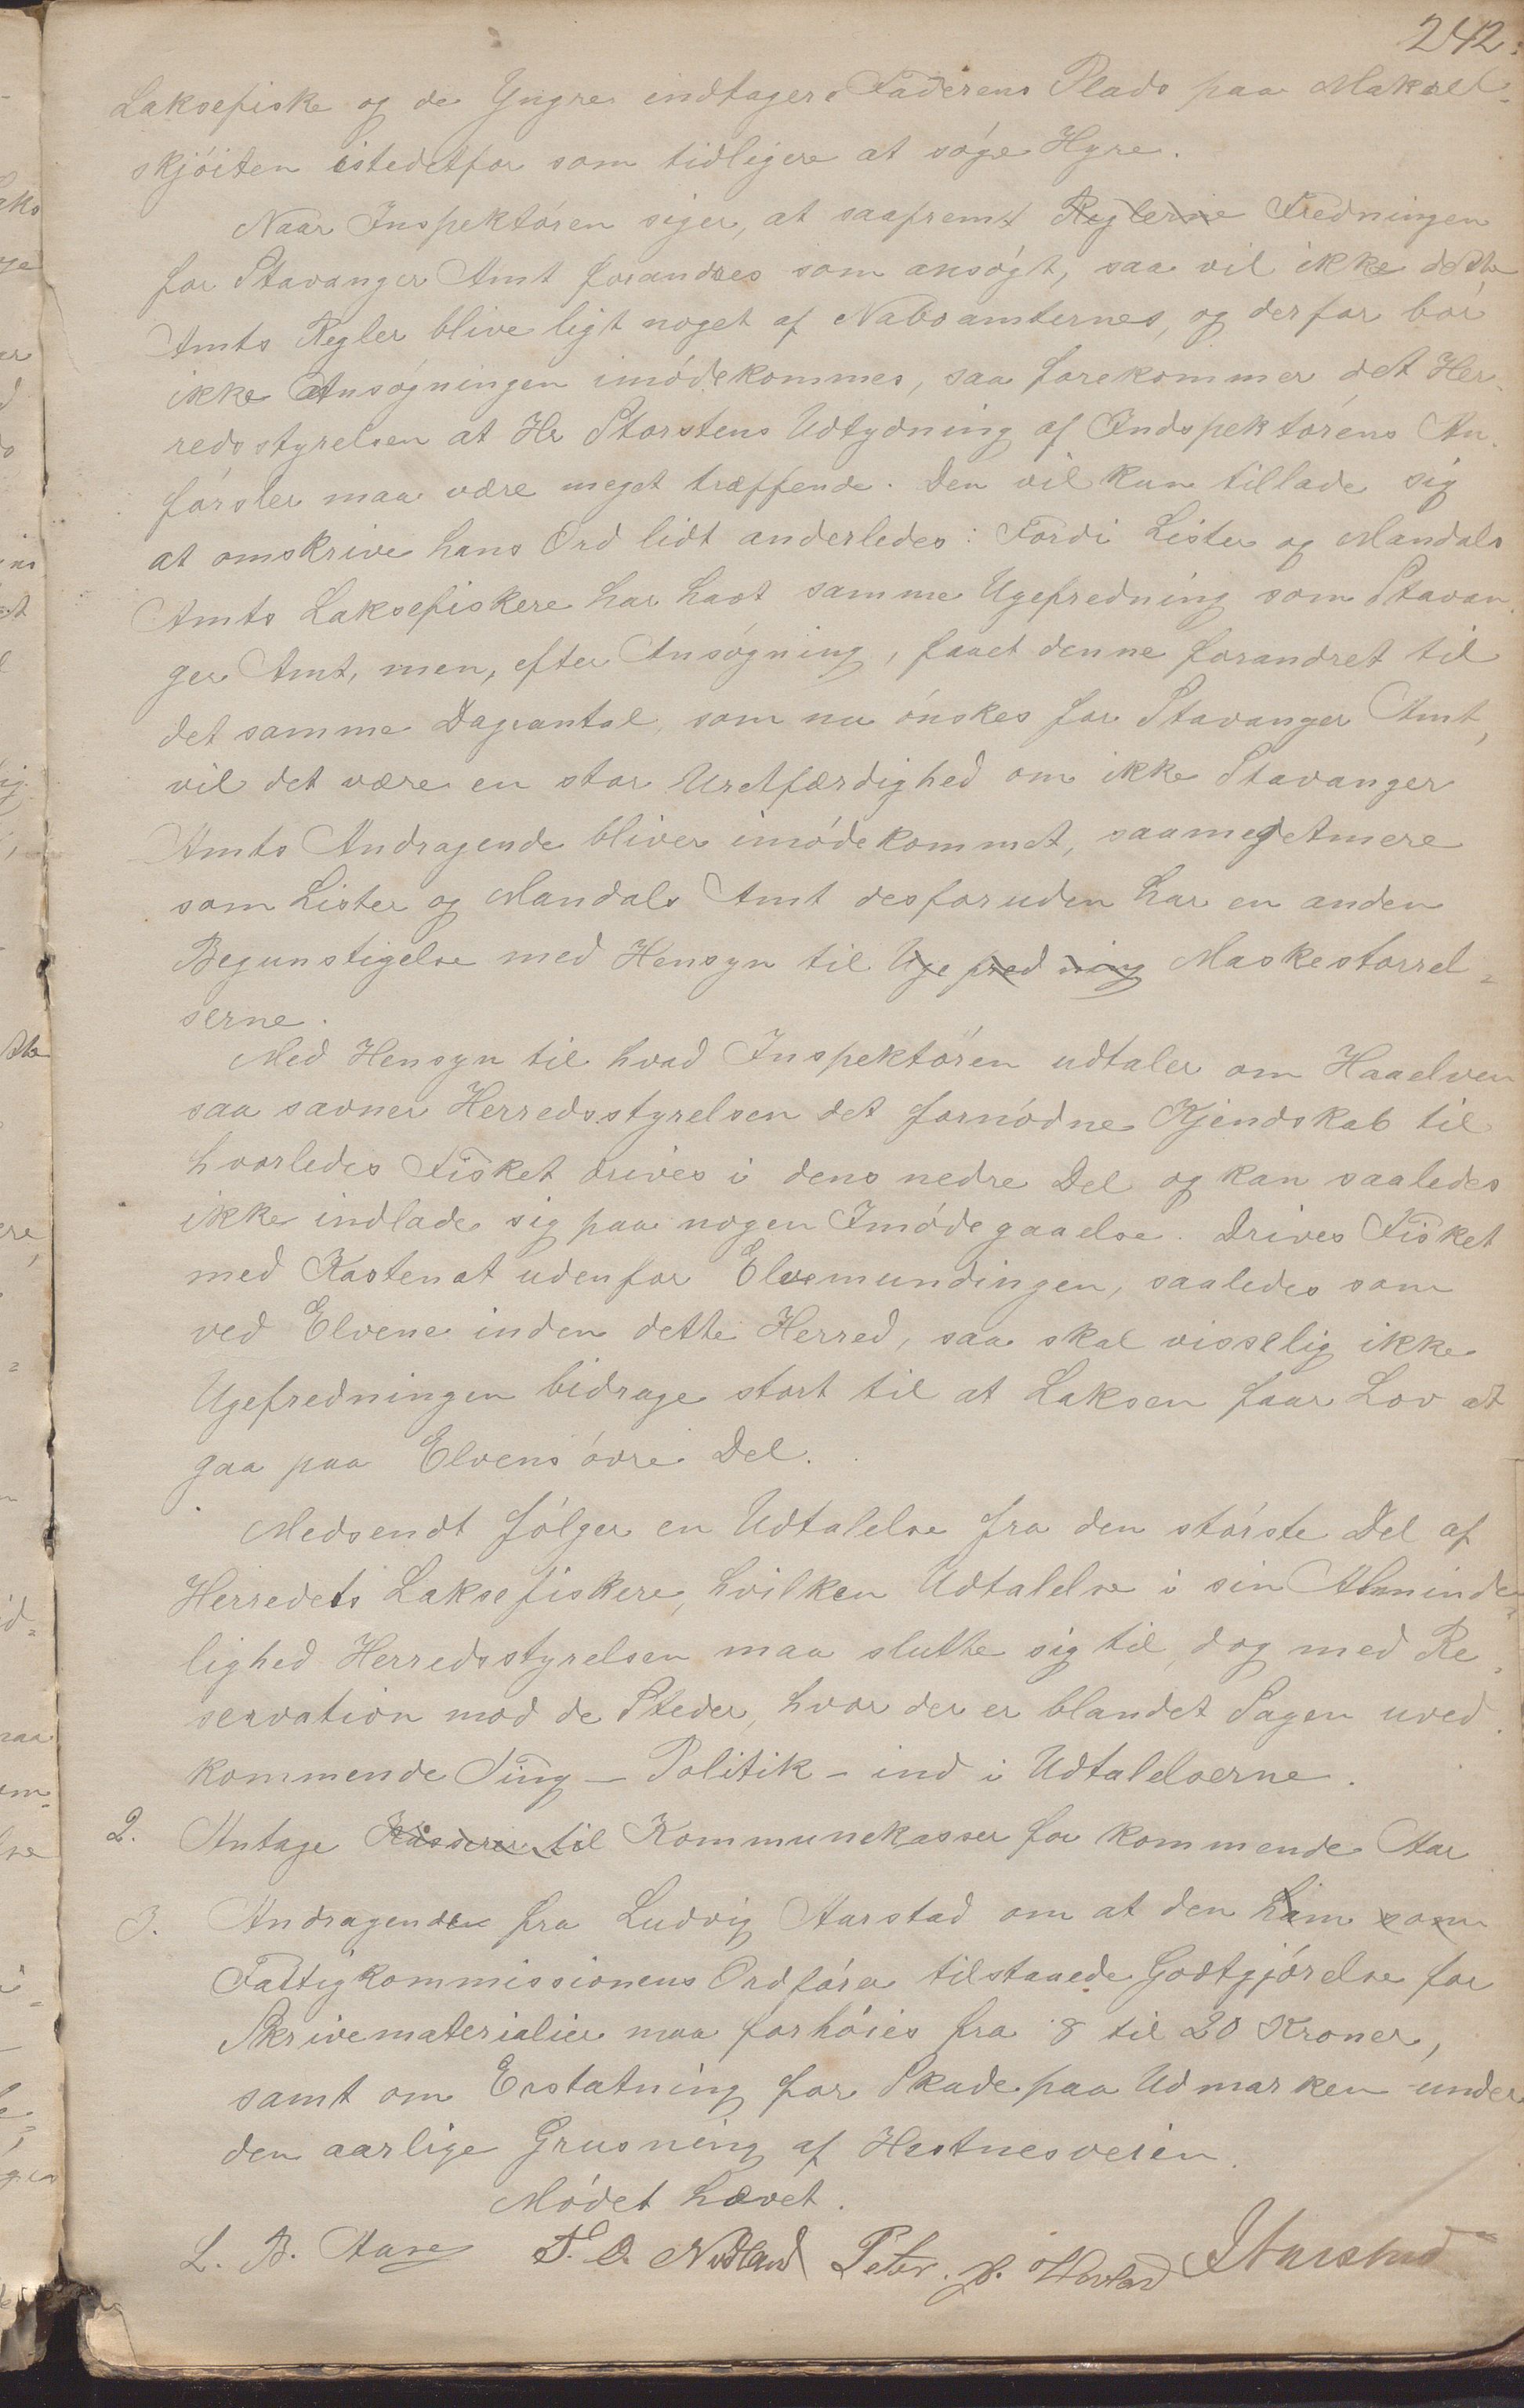 242.
Laksefiske og de Yngre indtager Faderens Plads paa Makrel-
skjöiten istedetfor som tidligere at söge Hyre.
Naar Inspektören siger, at saafremt Reglerne Fredningen
for Stavanger Amt forandres som ansögt, saa vil ikke dette
Amts Regler blive ligt noget af Naboamternes, og derfor bör
ikke Ansögningen imödekommes, saa forekommer det Her-
redsstyrelsen at Hr Storstens Udtydning af Indspektörens An-
försler maa være meget træffende. Den vil kun tillade sig
at omskrive hans Ord lidt anderledes: Fordi Lister og Mandals
Amts Laksefiskere har havt samme Ugefredning som Stavan-
ger Amt, men, efter Ansögning, faaet denne forandret til
det samme Dageantal, som nu önskes for Stavanger Amt,
vil det være en stor Uretfærdighed om ikke Stavanger
Amts Andragende bliver imödekommet, saamegetmere
som Lister og Mandals Amt desforuden har en anden
Begunstigelse med Hensyn til Ugefredning Maskestorrel-
serne.
Med Hensyn til hvad Inspektören udtaler om Haaelven
saa savner Herredsstyrelsen det fornödne Kjendskab til
hvorledes Fisket drives i dens nedre Del og kan saaledes
ikke indlade sig paa nogen Imödegaaelse. Drives Fisket
med Kastenot udenfor Elvemundingen, saaledes som
ved Elvene inden dette Herred, saa skal visselig ikke
Ugefredningen bidrage stort til at Laksen faar Lov at
gaa paa Elvens övre Del.
Medsendt fölger en Udtalelse fra den störste Del af
Herredets Laksefiskere, hvilken Udtalelse i sin Alminde-
lighed Herredsstyrelsen maa slutte sig til, dog med Re-
servation mod de Steder, hvor der er blandet Sagen uved-
kommende Ting – Politik – ind i Udtalelserne.
2. Antage Kasserer til Kommunekasser for kommende Aar
3. Andragende fra Ludvig Aarstad om at den ham som
Fattigkommissionens Ordförer tilstaaede Godtgjörelse for
Skrivematerialier maa forhöies fra 8 til 20 Kroner,
samt om Erstatning for Skade paa Udmarken under
den aarlige Grusning af Hestnesveien.
Mödet hævet.
L. B. Aase T. O. Nodland Peter. H. J Aarstad